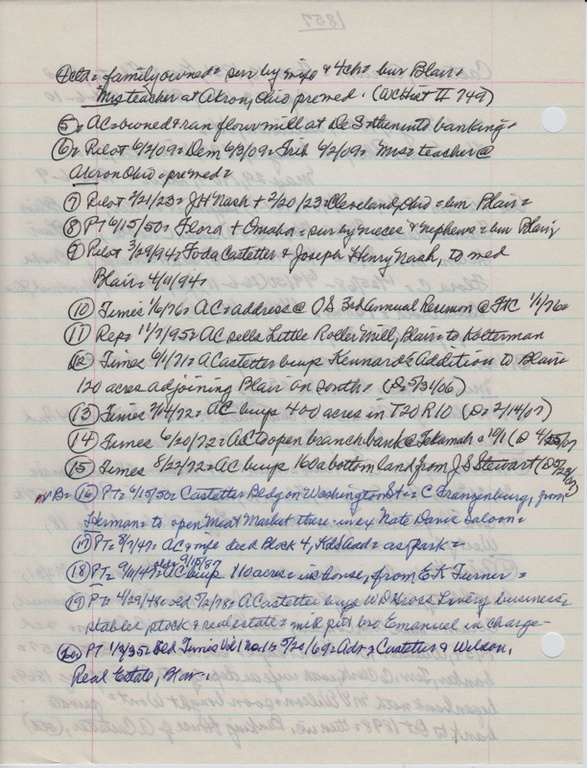 1857
family owned = surv by wife & 4 ch = bur Blair =
Mrs teacher at Akron, Ohio pre wed. (WCHist II 749)
⑤ = AC = owned & ran flour mill at De Soto then into banking =
⑥ = Pilot 6/2/09 = Dem 6/3/09 = Trib 6/2/09 = Mrs = teacher @
Akron Ohio = pre wed =
⑦ Pilot 2/21/23 = JH Nash + 2/20/23 = Cleveland, Ohio = bur Blair =
⑧ PT 6/15/50 = Flora + Omaha = surv by nieces & nephews = bur Blair,
⑨ Pilot 3/29/94 = Toda Castetter & Joseph Henry Nash, to wed
Blair = 4/11/94 =
⑩ Times 1/6/76 = AC = address @ OS 3rd annual Reunion @ FtC 1/1/76 =
⑪ Rep = 11/7/95 = AC sells Little Roller Mill, Blair = to Kolterman
⑫ Times 6/1/71 = A Castetter buys Kennard's Addition to Blair =
120 acres adjoining Blair on south = (D = 5/31/06)
⑬ Times 2/14/72 = AC buys 400 acres in T20 R10 (D = 2/14/07)
⑭ Times 6/20/72 = AC to open branch bank @ Tekamah = 10/1 (D 4/25/07
⑮ Times 8/22/72 = AC buys 160 a bottom land from J S Stewart (D 5/28/07)
B = ⑯ PT = 6/15/50 = Castetter Bldg on Washington St = C Franzenburg, from
Herman = to open Meat Market there = in ex Nate Davis Saloon =
⑰ PT = 8/7/47 = AC & wife deed Block 4, Add = as park =
⑱ PT = 9/11/47 = 9/15/87 AC buys 110 acres = inc house, from E K Turner =
⑲ PT = 4/29/48 = old 5/2/78 = A Castetter buys W D Gross Livery business =
stables, stock & real estate = will put bro Emanuel in charge -
⑳ PT 1/3/35 = Bld Times Vol 1 No 1 = 5/20/69 = Adv = Castetter & Wilson,
Real Estate, Blair.